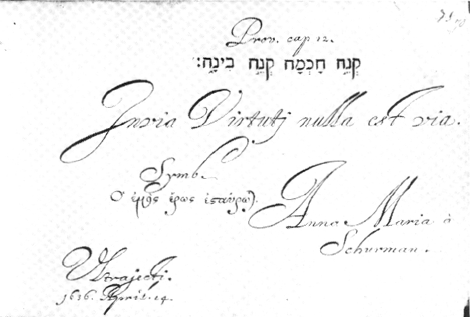 Prov. cap 12.
קְנֵה חָכְמָה קְנֵה בִינָה׃
Invia Virtutj nulla est via.
Symb.
Ὁ ἐμὸς ἔρως ἐϛαύρω).
Anna Maria à
Schurman.
Vltrajectj.
April. 14.